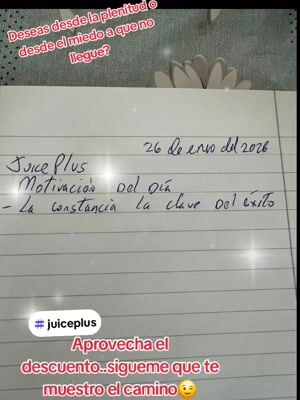 Deseas desde la plenitud o
desde el miedo a que no
llegue?
26 de enero del 2026
Juice Plus
Motivación Del Día
- La constancia la clave Del éxito
# juiceplus
Aprovecha el
descuento..sigueme que te
muestro el camino😉